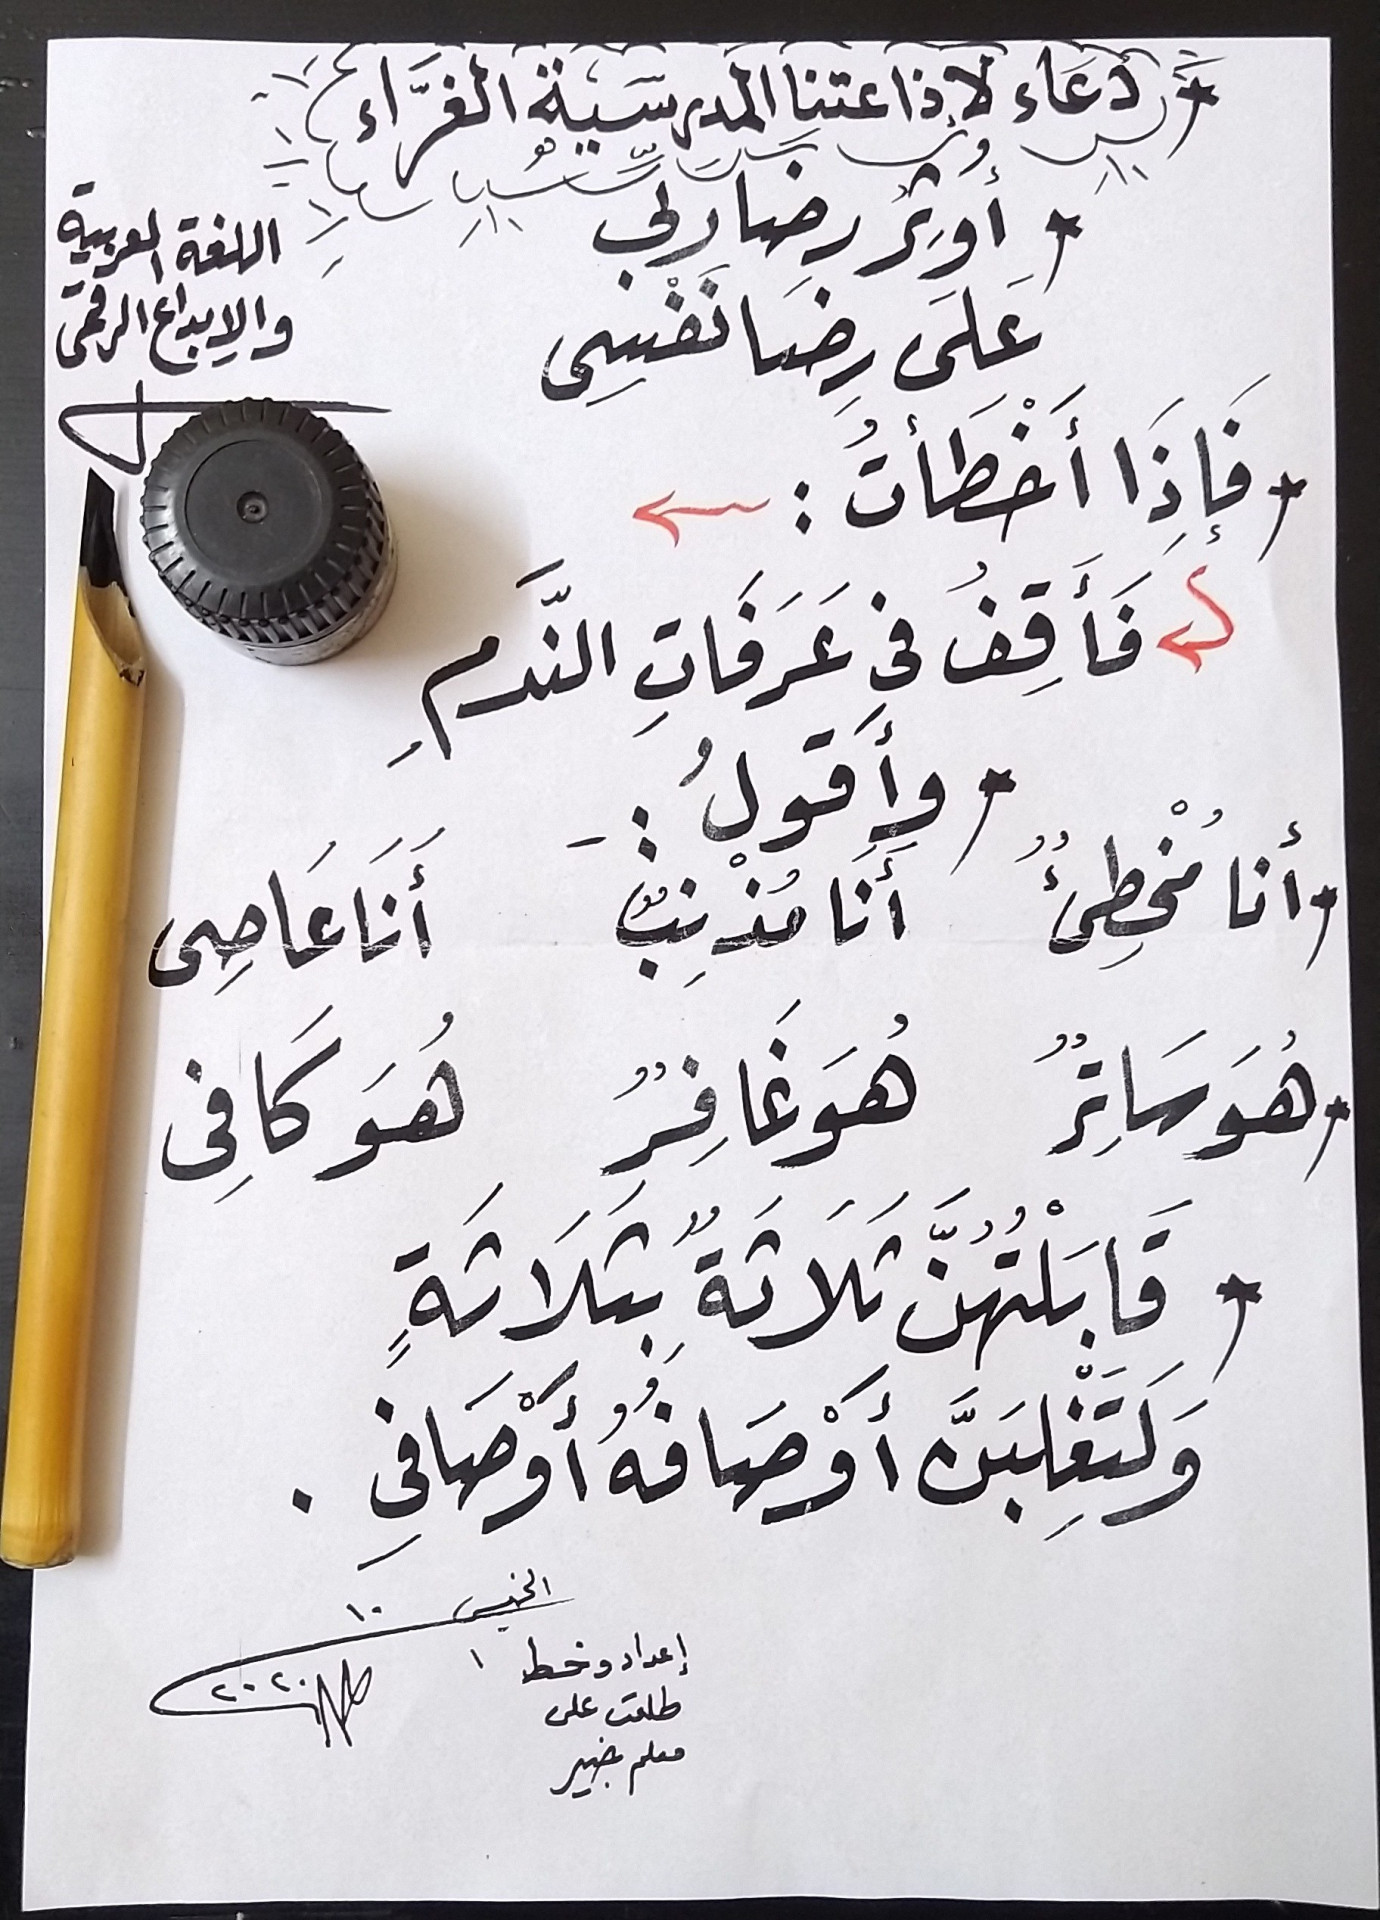 دعاء لإذاعتنا المدرسية الغرَّاء
اللغة العربية
والإبداع الرقمى
أُوثِرُ رضا ربى
عَلَى رِضَا نَفْسِى
فَإِذَا أَخْطَأتُ :
فَأَقِفُ فى عَرَفَاتِ النَّدَمِ
وأَقولُ :-
أنا مُخْطِئٌ أَنَا مُذْنِبٌ أَنَا عَاصِى
هُوَ سَاتِرٌ هُوَ غَافِرٌ هُوَ كَافِى
قَابَلْتُهُنَّ ثَلَاثَةٌ بِثَلَاثَةٍ
وَلَتَغْلِبَنَّ أَوْصَافُهُ أَوْصَافِى .
الخميس
١٠
١
٢٠٢٠
إعداد وخط
طلعت على
معلم خبير